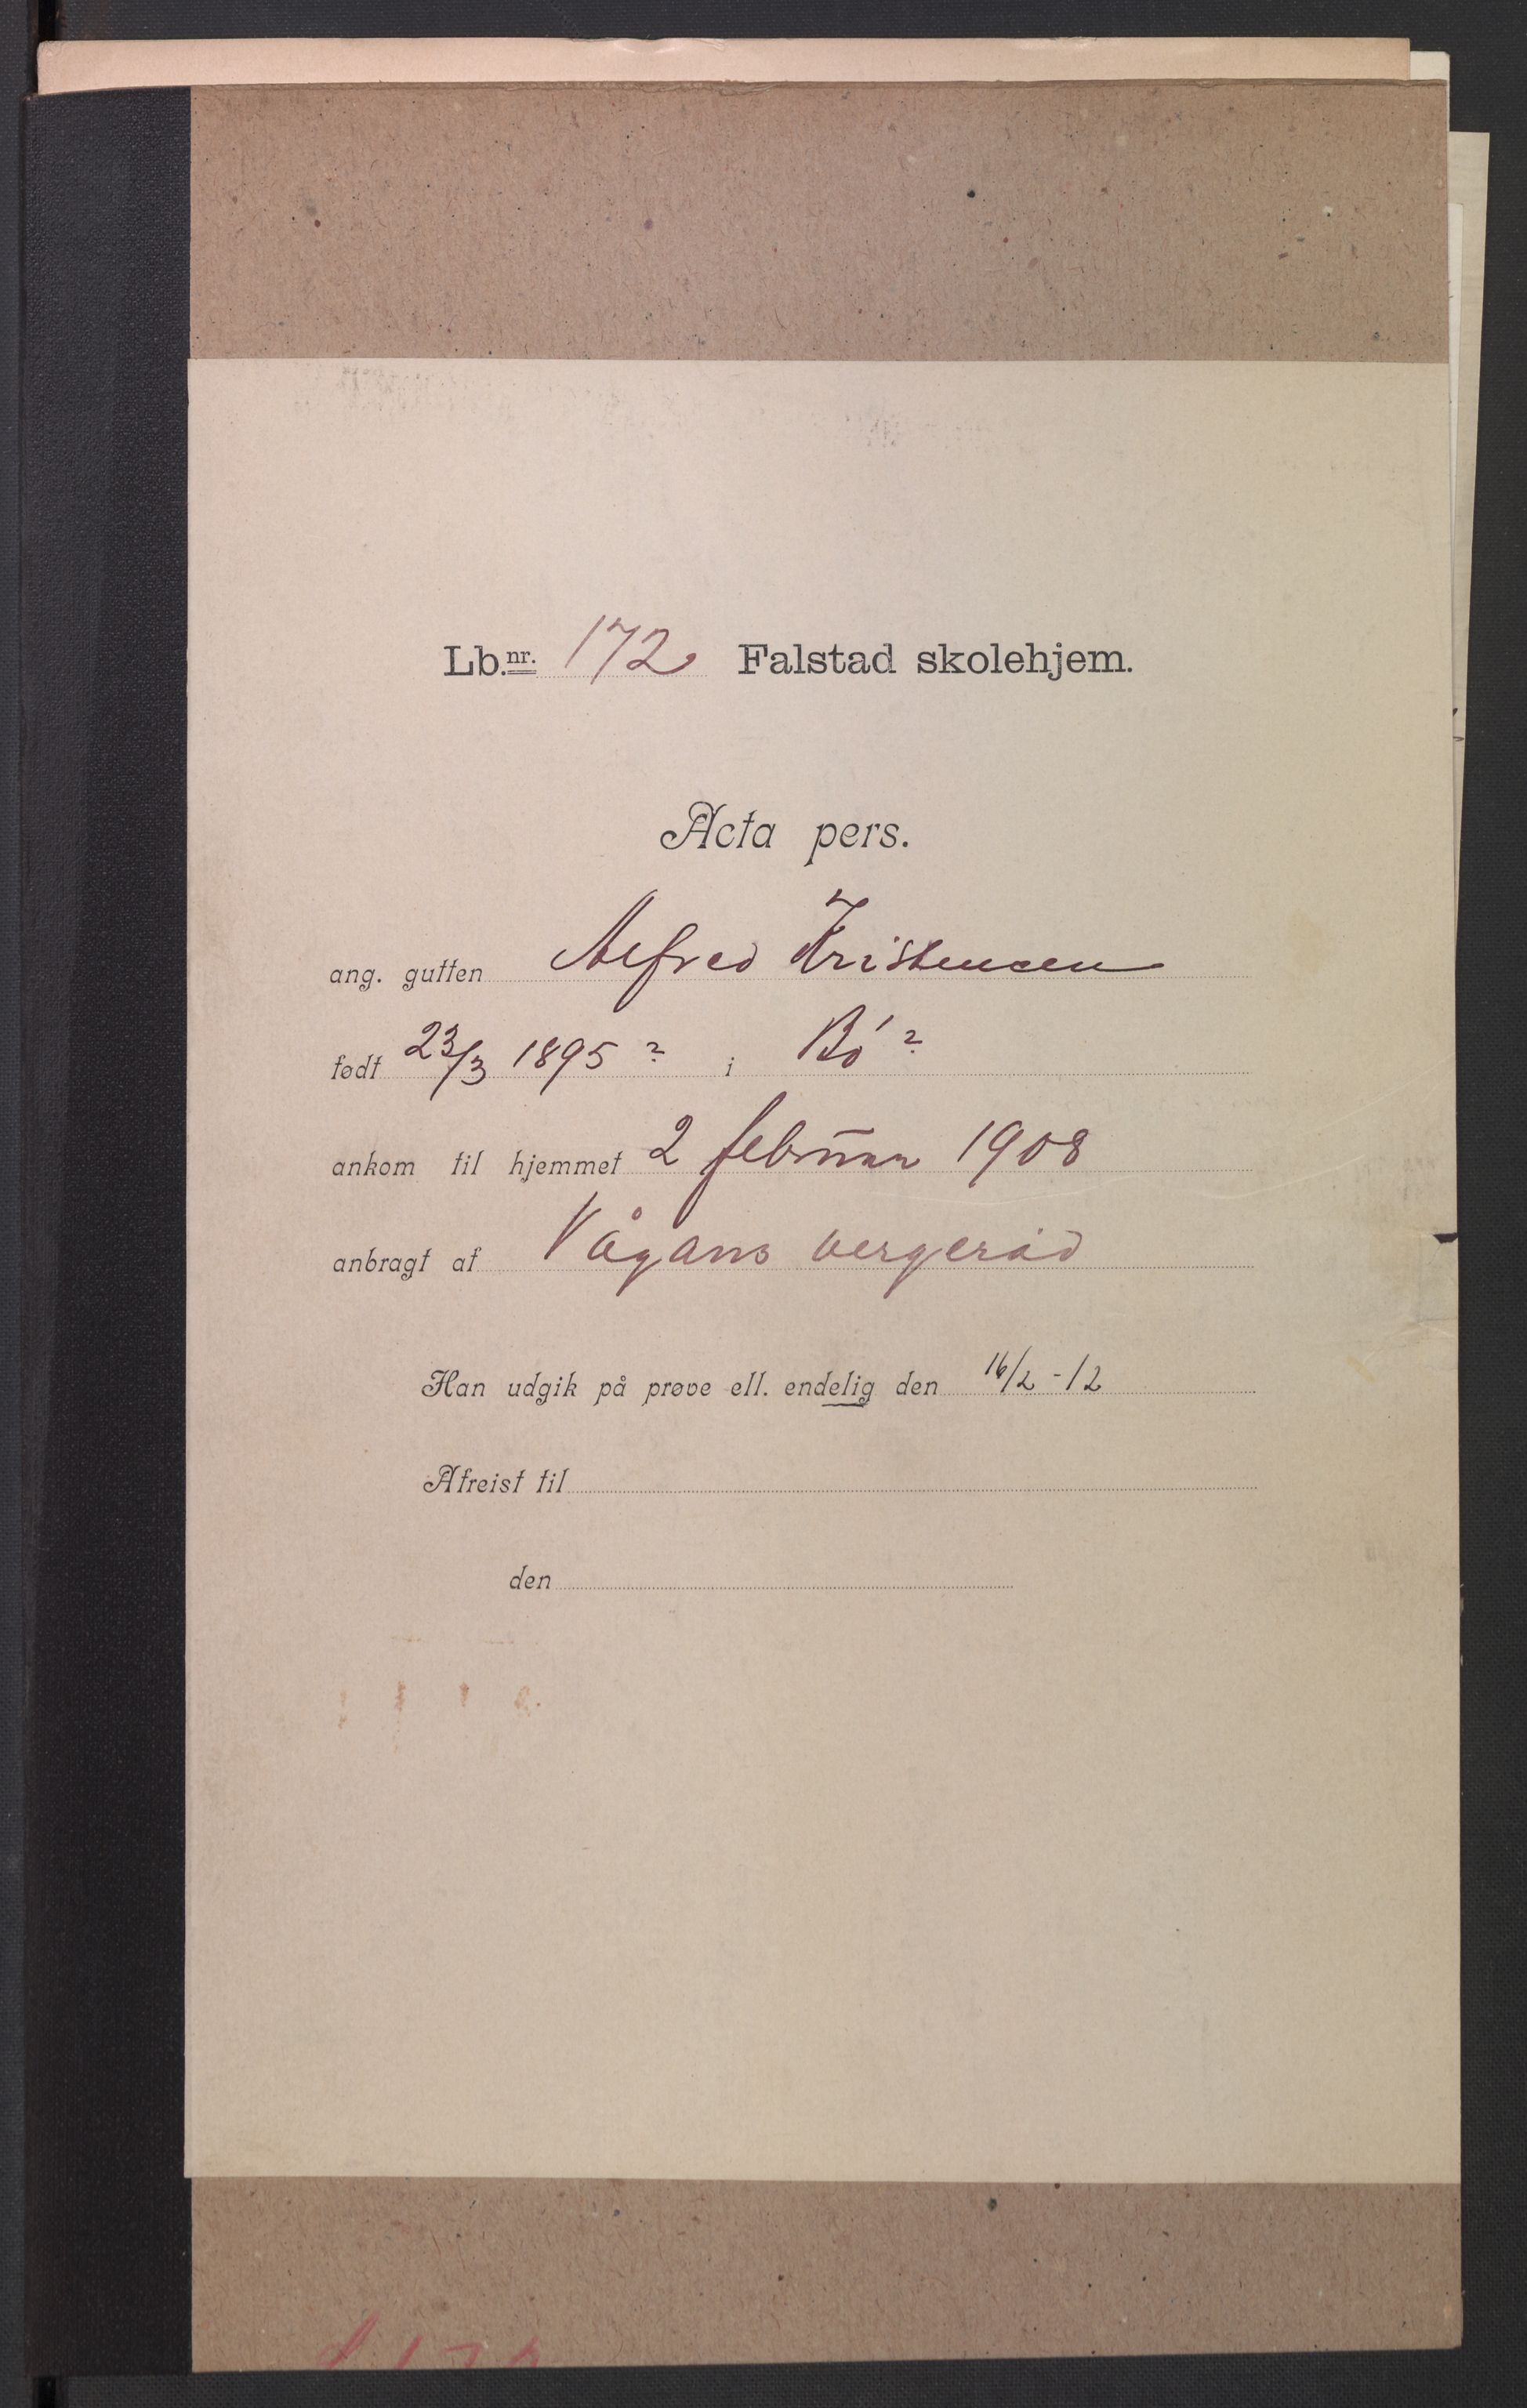 Lb.nr. 172 Falstad skolehjem.
Acta pers.
ang. gutten Alfred Kristensen
født 23/3 1895 ? i Bö ?
ankom til hjemmet 2 februar 1908
anbragt af Vågans vergeråd
Han udgik på prøve ell. endelig den 16/2 - 12
Afreist til
den